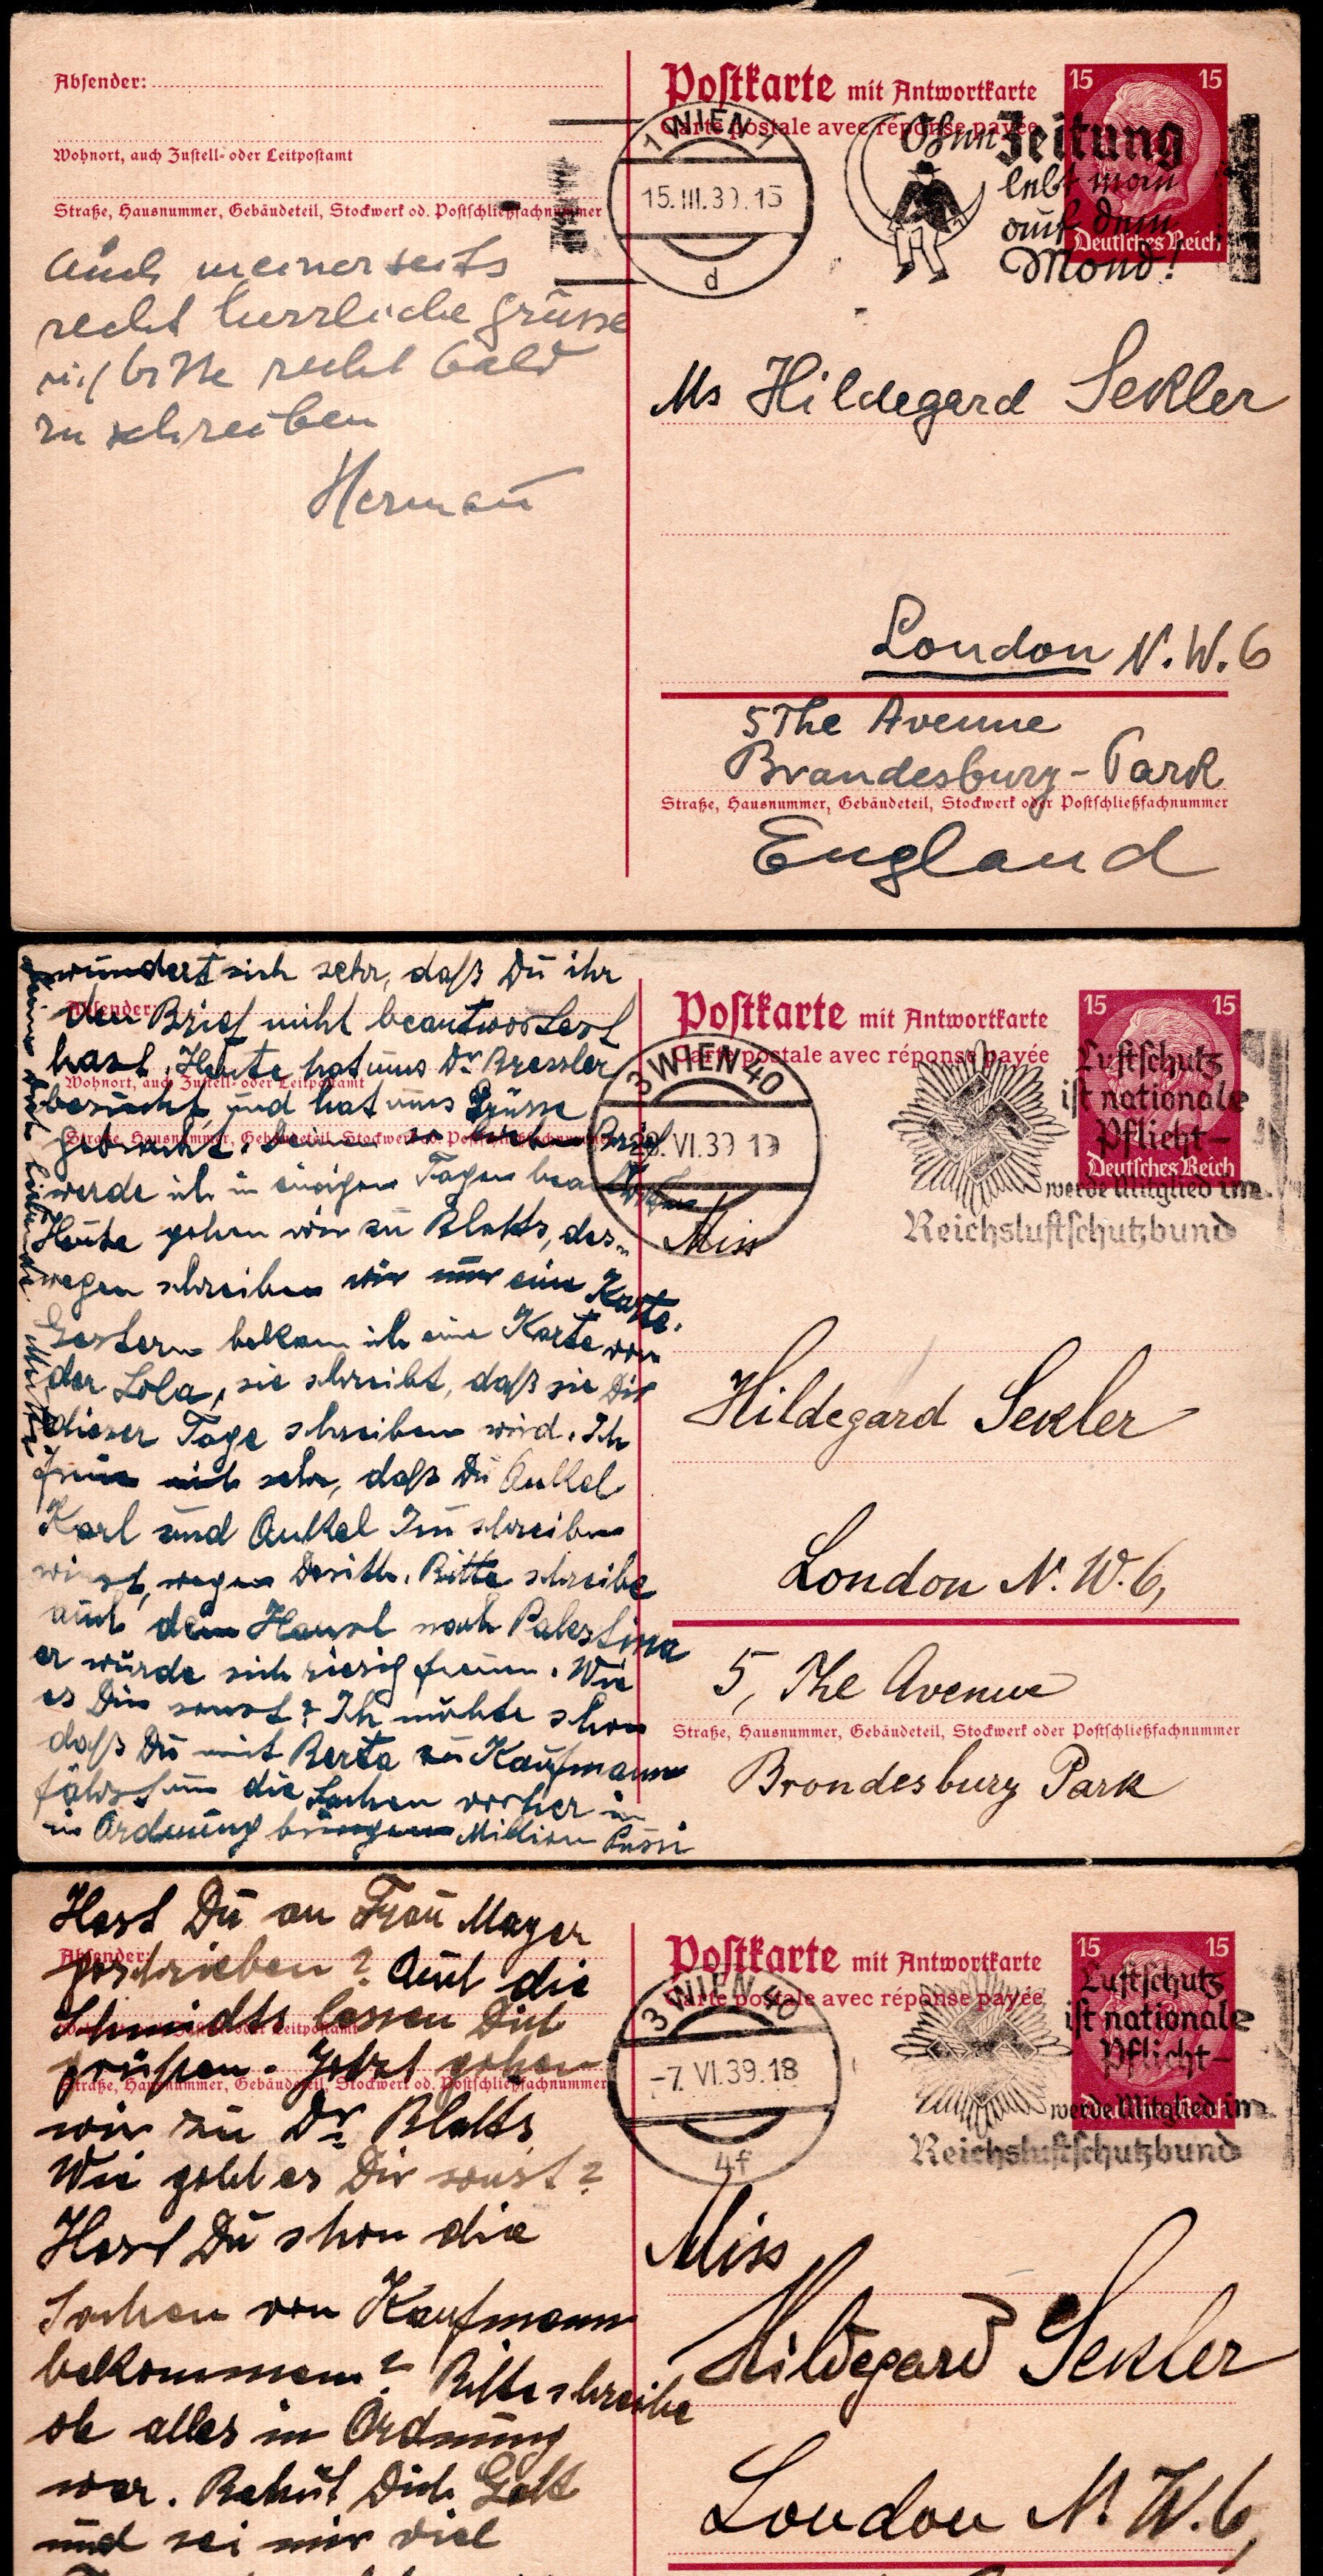 Absender:
Wohnort, auch Zustell- oder Leitpostamt
Straße, Hausnummer, Gebäudeteil, Stockwerk od. Postschließfachnummer
Auch meinerseits
recht herzliche Grüsse
bitte recht bald
zu schreiben
Herman
Postkarte mit Antwortkarte
Carte postale avec réponse payée
15 15
Deutsches Reich
1 WIEN 1
15.III.39.15
d
Ohne Zeitung
lebt man
auf dem
Mond!
Ms Hildegard Sekler
London N.W.6
5 The Avenue
Brandesburg-Park
Straße, Hausnummer, Gebäudeteil, Stockwerk oder Postschließfachnummer
England
wundert sich sehr, daß Du ihr
den Brief nicht beantwortest
hast. Heute hat uns Dr Bressler
besucht und hat uns Grüsse
gebracht. Brief
werde ich in einigen Tagen
Heute gehen wir zu Blatts, des-
wegen schreiben wir nur eine Karte.
Gestern bekam ich eine Karte von
der Lola, sie schreibt, daß sie Dir
dieser Tage schreiben wird. Ich
freue mich sehr, daß Du Onkel
Karl und Onkel schreiben
wirst, wegen Bitte schreibe
auch dem Hansl nach Palestina
er würde sich riesig freuen. Wie
es Dir sonst? Ich möchte schon
daß Du mit Berta zu Kaufmann
fährst um die Sachen vorher in
in Ordnung bringen Million Pussi
Absender:
Wohnort, auch Zustell- oder Leitpostamt
Straße, Hausnummer, Gebäudeteil, Stockwerk od. Postschließfachnummer
Postkarte mit Antwortkarte
Carte postale avec réponse payée
15 15
Deutsches Reich
3 WIEN 40
VI.39 19
Luftschutz
ist nationale
Pflicht-
werde Mitglied im
Reichsluftschutzbund
Miss
Hildegard Sekler
London N.W.6,
5, The Avenue
Straße, Hausnummer, Gebäudeteil, Stockwerk oder Postschließfachnummer
Brondesbury Park
Hast Du an Frau Mayer
geschrieben? Auch die
Schmidts lassen Dich
grüßen. Jetzt gehen
wir zu Dr Blatts
Wie geht es Dir sonst?
Hast Du schon die
Sachen von Kaufmann
bekommen? Bitte schreibe
ob alles in Ordnung
war. Behüt Dich Gott
und sei mir viel
Absender:
Straße, Hausnummer, Gebäudeteil, Stockwerk od. Postschließfachnummer
Postkarte mit Antwortkarte
Carte postale avec réponse payée
15 15
3 WIEN 40
-7.VI.39.18
4f
Luftschutz
ist nationale
Pflicht-
werde Mitglied im
Reichsluftschutzbund
Miss
Hildegard Sekler
London N.W.6,